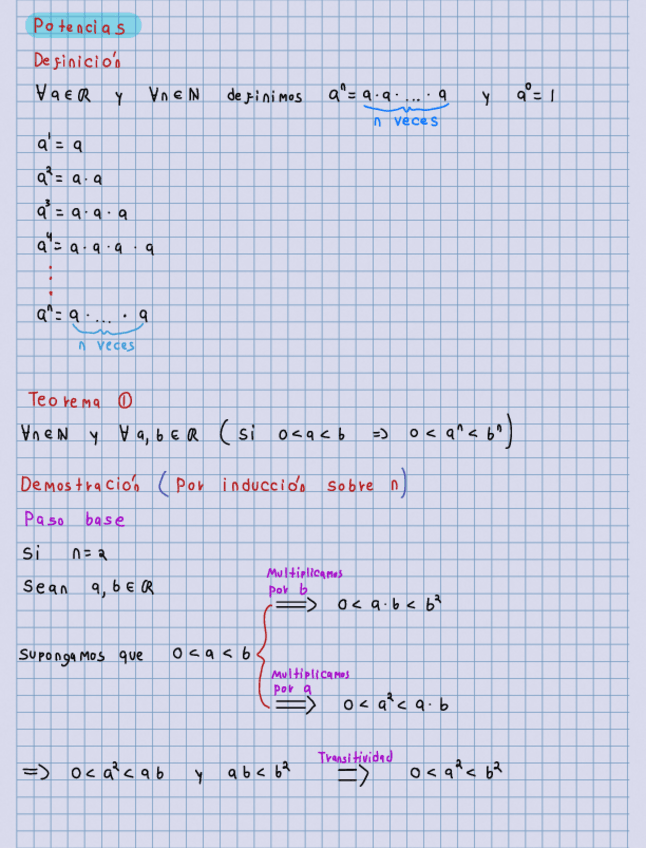 Potencias
Definición
∀a∈ℝ y ∀n∈ℕ definimos aⁿ = a·a· ... ·a y a⁰ = 1
n veces
a¹ = a
a² = a·a
a³ = a·a·a
a⁴ = a·a·a·a
⋮
aⁿ = a· ... ·a
n veces
Teorema ①
∀n∈ℕ y ∀a,b∈ℝ (si 0<a<b => 0<aⁿ<bⁿ)
Demostración (Por inducción sobre n)
Paso base
Si n=2
Sean a,b∈ℝ
Multiplicamos
por b
=> 0<a·b<b²
Supongamos que 0<a<b
Multiplicamos
por a
=> 0<a²<a·b
=> 0<a²<ab y ab<b² Transitividad => 0<a²<b²